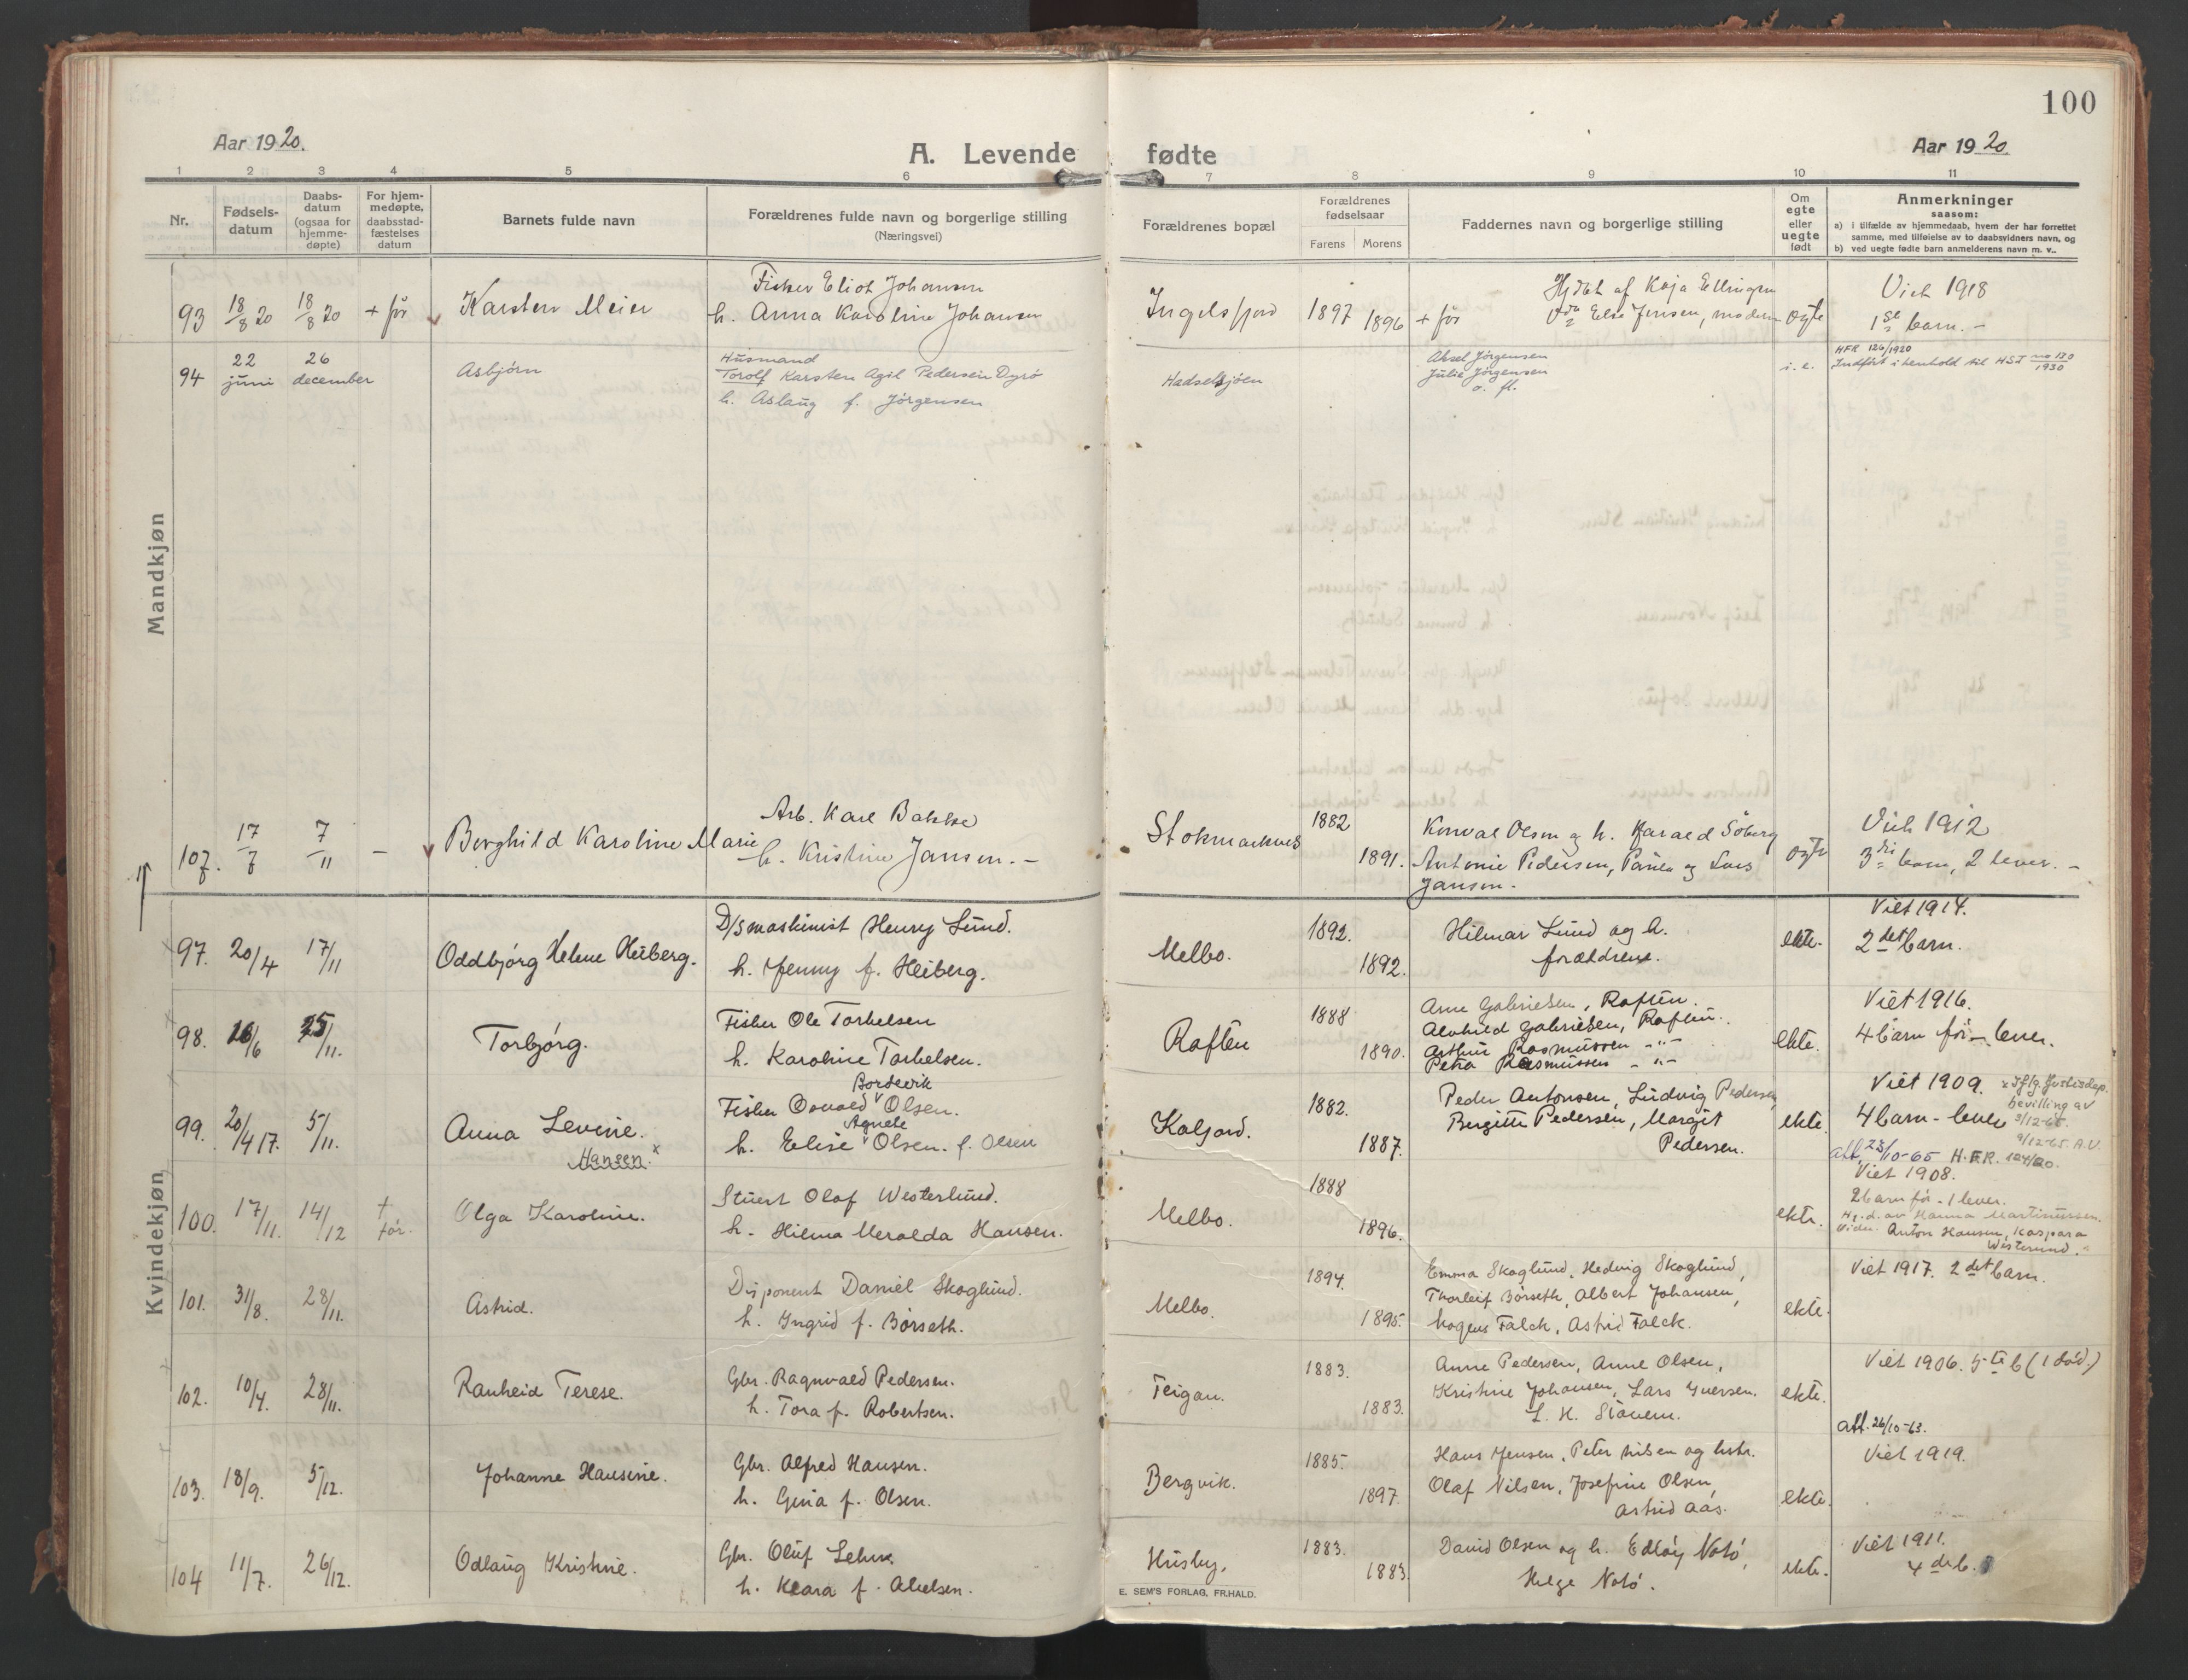 100
Aar 1920.
A. Levende fødte
Aar 1920
1 2 3 4 5 6 7 8 9 10 11
Nr.
Fødsels-
datum
Daabs-
datum
(ogsaa for
hjemme-
døpte)
For hjem-
medøpte,
daabsstad-
fæstelses
datum
Barnets fulde navn
Forældrenes fulde navn og borgerlige stilling
(Næringsvei)
Forældrenes bopæl
Forældrenes
fødselsaar
Farens Morens
Faddernes navn og borgerlige stilling
Om
egte
eller
uegte
født
Anmerkninger
saasom:
a) i tilfælde av hjemmedaab, hvem der har forrettet
samme, med tilføielse av to daabsvidners navn, og
b) ved uegte fødte barn anmelderens navn m. v..
Mandkjøn
93 18/8 20 18/8 20 + før Karsten Meier
Fisker Eliot Johansen
h. Anna Karoline Johansen
Ingelsfjord 1897 1896 + før
Hjdbt af Kaja Ellingsen
Else Jensen, modern
egte
Viet 1918
1ste barn. -
94 22 juni 26 december Asbjørn
Husmand
Torolf Karsten Agil Pedersen Dyrö
h. Aslaug f. Jørgensen
Hadselsjöen
Aksel Jörgensen
Julie Jörgensen
o. fl.
i. e.
HFR 126/1920
Indført i henhold til HST no 170/1930
107. 17/7 7/11 - Borghild Karoline Marie
Arb. Karl Bakke
h. Kristine Jansen. -
Stokmarknes 1882 1891.
Konval Olsen og h. Harald Söberg
Antonie Pedersen, Paula og Lars
Jansen.
egte
Viet 1912
3die barn, 2 lever. -
Kvindekjøn
97. 20/4 17/11 Oddbjørg Helene Heiberg.
D/S maskinist Henry Lund.
h. Jenny f. Heiberg.
Melbo. 1892. 1892.
Hilmar Lund og h.
forældrene.
ekte.
Viet 1914.
2det barn.
98. 16/6 25/11. Torbjørg.
Fisker Ole Torkelsen
h. Karoline Torkelsen.
Raften 1888 1890.
Arne Gabrielsen, Raften.
Alvhild Gabrielsen, Raften.
Arthur Rasmussen -"-
Petra Rasmussen -"-
ekte.
Viet 1916.
4 barn før - lever.
99. 20/4 17. 5/11. Anna Levine.
Hansen. x
Bordevik
Fisker Osvald v Olsen.
Agnete
h. Elise v Olsen. f. Olsen
Kaljord. 1882. 1887.
Peder Antonsen, Ludvig Pedersen,
Bergitte Pedersen, Margit
Pedersen.
ekte.
Viet 1909.
x Iflg. Justisdep.
bevilling av
4 barn - lever 3/12-65.
9/12-65. A.V.
att. 28/10-65 H.F.R. 124/20.
100. 17/11. 14/12 † før. Olga Karoline.
Stuert Olaf Westerlund.
h. Hilma Meralda Hansen.
Melbo. 1888 1896.
ekte.
Viet 1908.
2 barn før - 1 lever.
Hj.d. av Hanna Martinussen.
Vidn. Anton Hansen, Kaspara
Westerund.
101. 31/8. 28/11. Astrid.
Disponent Daniel Skoglund.
h. Ingrid f. Börseth.
Melbo. 1894. 1895.
Emma Skoglund, Hedvig Skoglund,
Thorleif Börseth, Albert Johansen,
Mogens Falck, Astrid Falck.
ekte.
Viet 1917. 2det barn.
102. 10/4. 28/11. Ranheid Terese.
Gbr. Ragnvald Pedersen.
h. Tora f. Robertsen.
Teigan. 1883. 1883.
Anne Pedersen, Anne Olsen,
Kristine Johansen, Lars Iversen.
L. H. Stavem.
ekte.
Viet 1906. 5te b (1 död.)
103. 18/9. 5/12. Johanne Hansine.
Gbr. Alfred Hansen.
h. Gina f. Olsen.
Bergvik. 1885. 1897.
Hans Jensen, Peter Nilsen og hstr.
Olaf Nilsen, Josefine Olsen,
Astrid Aas.
ekte.
att. 26/10-63.
Viet 1919.
104 11/7. 26/12. Odlaug Kristine.
Gbr. Oluf
h. Klara f. Akelsen.
Husby, 1883. 1883.
David Olsen og h. Notö,
Helge Notö.
ekte.
Viet 1911.
4de b.
E. SEM'S FORLAG, FR.HALD.